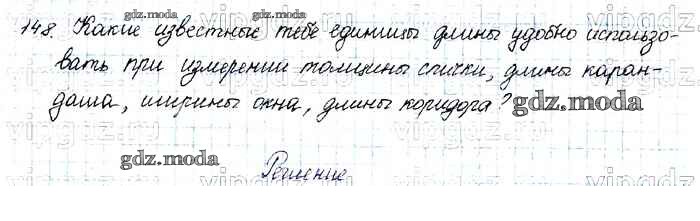 148. Какие известные тебе единицы длины удобно использо-
вать при измерении толщины спички, длины каран-
даша, ширины окна, длины коридора?
gdz.moda
gdz.moda
gdz.moda
gdz.moda
Решение